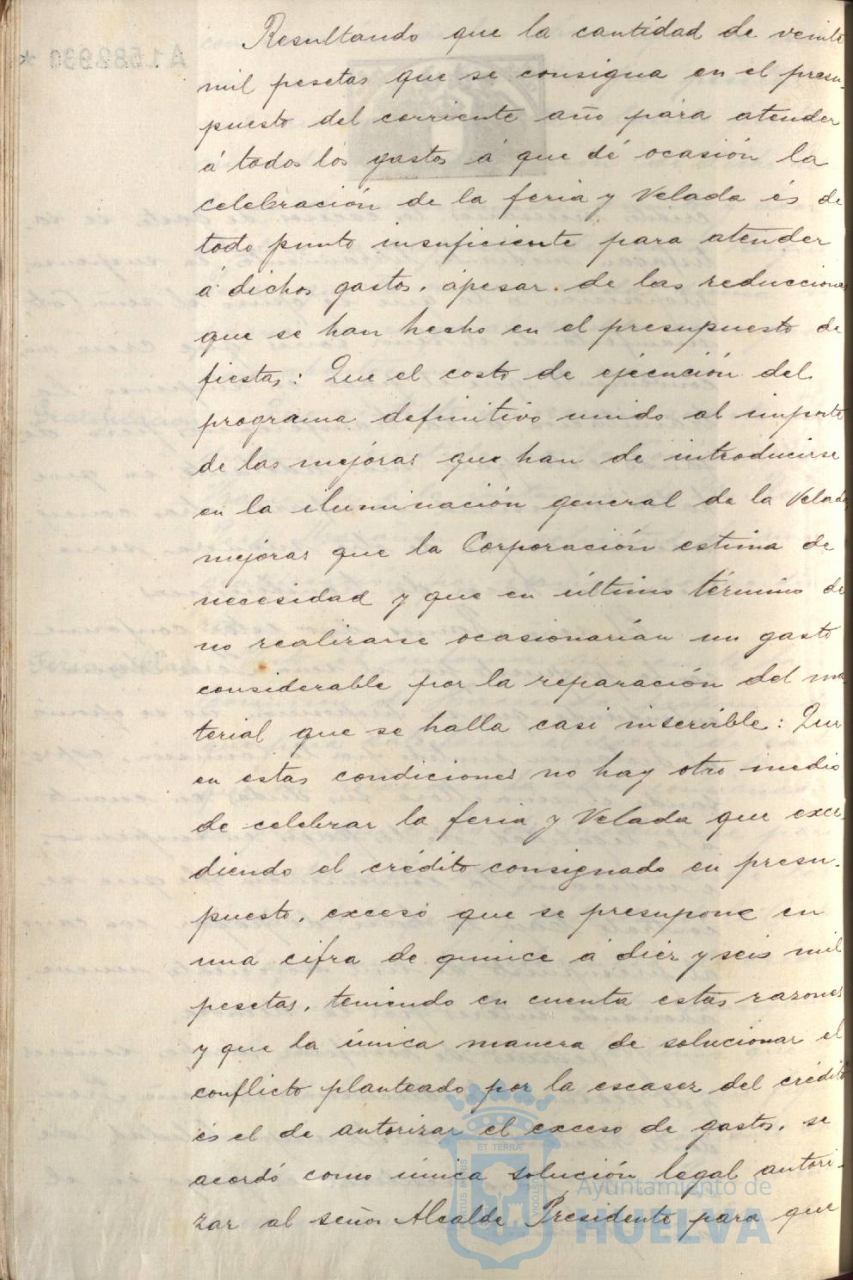 Resultando que la cantidad de veinte
mil pesetas que se consigna en el presu-
puesto del corriente año para atender
á todos los gastos á que dé ocasión la
celebración de la feria y Velada és de
todo punto insuficiente para atender
á dichos gastos, apesar de las reducciones
que se han hecho en el presupuesto de
fiestas: Que el costo de ejecución del
programa definitivo unido al importe
de las mejoras que han de introducirse
en la iluminación general de la Velada
mejoras que la Corporación estima de
necesidad y que en último término de
no realizarse ocasionarían un gasto
considerable por la reparación del ma-
terial que se halla casi inservible: Que
en estas condiciones no hay otro medio
de celebrar la feria y Velada que exce-
diendo el crédito consignado en presu-
puesto, exceso que se presupone en
una cifra de quince á diez y seis mil
pesetas, teniendo en cuenta estas razones
y que la única manera de solucionar el
conflicto planteado por la escasez del crédito
és el de autorizar el exceso de gastos, se
acordó como única solución legal autori-
zar al señor Alcalde Presidente para que
A1582930 *
ET TERRA
Ayuntamiento de
HUELVA